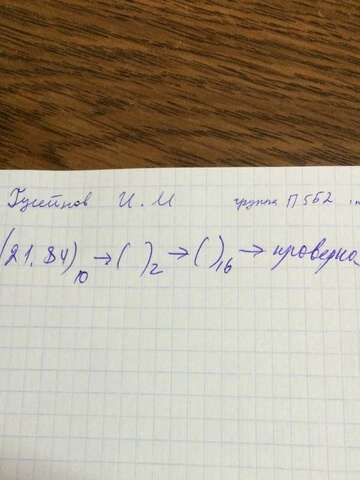 Гусейнов И.И группа П552
(21.84)10 → ( )2 → ( )16 → проверка